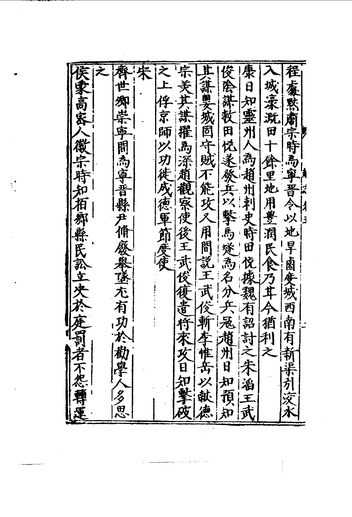 程處默肅宗時為寧晉令以地旱鹵鑿城西南有新渠引洨水
入城濠溉田十餘里地用豐潤民食乃甘今猶利之
康日知靈州人為趙州刺史時田悅據魏有詔討之朱滔王武
俊陰謀救田悅遂發兵以擊馬燧為名分兵冦趙州日知預知
其謀嬰城固守賊不能攻又用間說王武俊斬李惟岳以獻德
宗美其謀擢為深趙觀察使後王武俊復遣將來攻日知擊破
之上俘京師以功徙成德軍節度使
宋
齊世卿崇寧間為寧晉縣尹脩廢舉墜尤有功於勸學人多思
之
侯蒙高密人徽宗時知栢鄉縣民訟立決於庭罰者不怨轉運